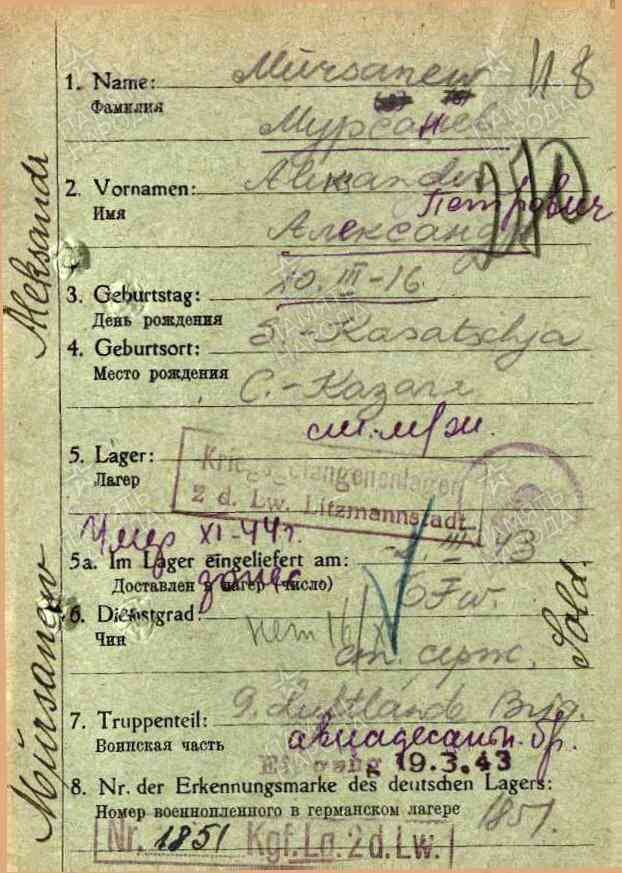 1. Name: Mürsanew И 8
Фамилия Мурсанев
н
2. Vornamen: Aleksander
Имя Петрович
Александр
3. Geburtstag: 10. III-16
День рождения
4. Geburtsort: S.-Kasatschja
Место рождения С.-Казачя
ст.серж.
5. Lager: Kriegsgefangenenlager
Лагер 2 d. Lw. Litzmannstadt
Умер XI-44г.
5a. Im Lager eingeliefert am: III 43
Доставлен в лагер (число)
6. Dienstgrad: OFw.
Чин нет 16/X
ст. серж.
7. Truppenteil: 9. Luftlande Brig.
Воинская часть авиадесантн. бр.
Eingang 19.3.43
8. Nr. der Erkennungsmarke des deutschen Lagers:
Номер военнопленного в германском лагере 1851.
Nr. 1851 Kgf. Lg. 2 d. Lw.
Mürsanew Aleksandr
Sold.
ПАМЯТЬ НАРОДА